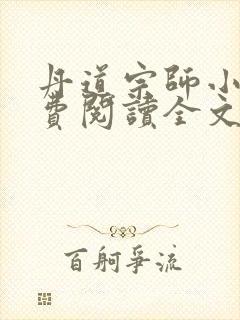 丹道宗師小
費閱讀全文
百舸爭流